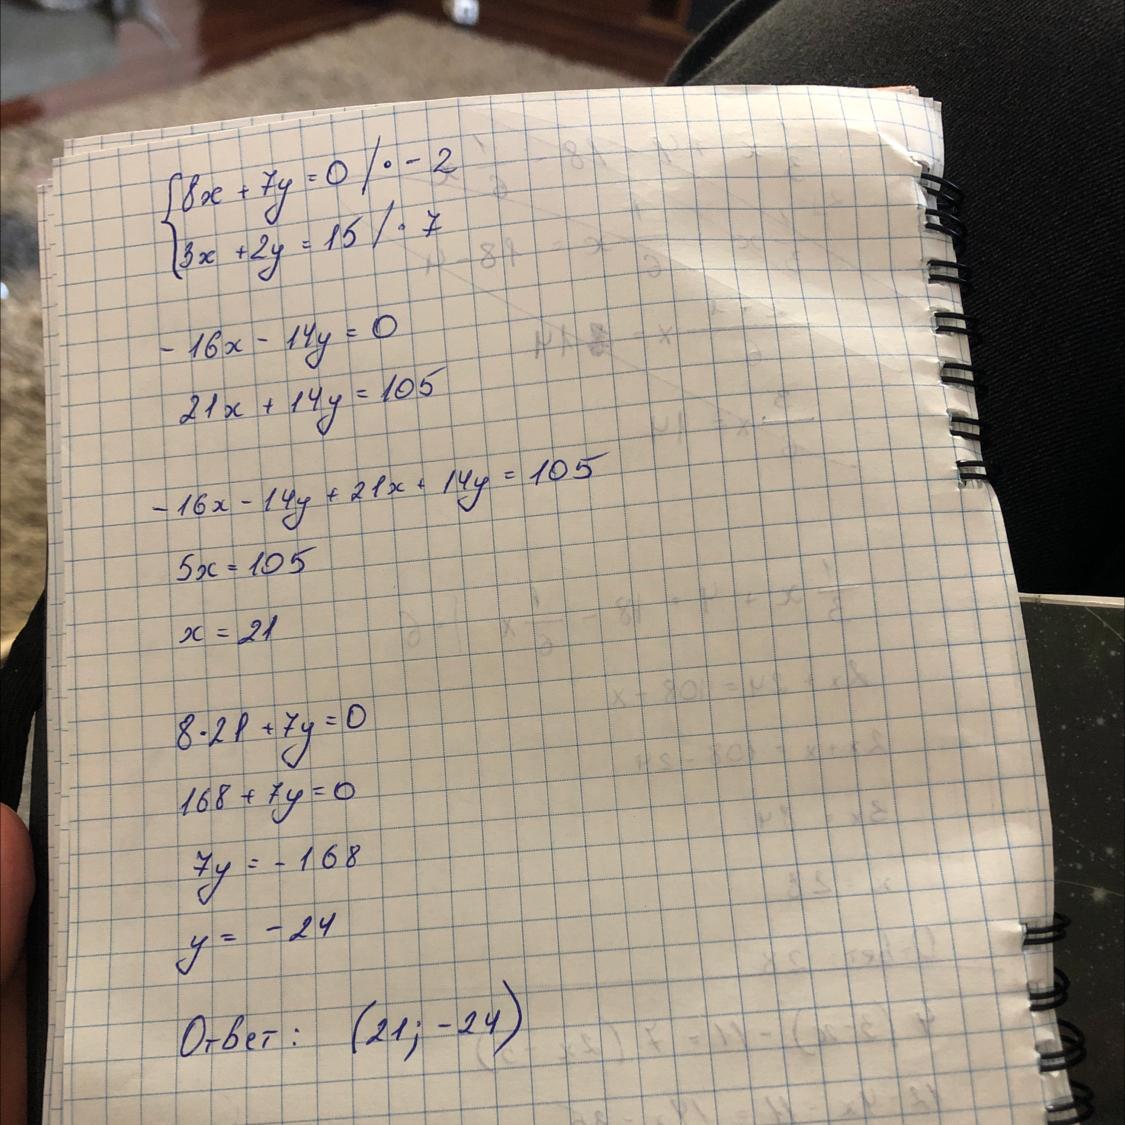 {8x + 7y = 0 / · - 2
3x + 2y = 15 / · 7
- 16x - 14y = 0
21x + 14y = 105
- 16x - 14y + 21x + 14y = 105
5x = 105
x = 21
8 · 21 + 7y = 0
168 + 7y = 0
7y = - 168
y = - 24
Ответ: (21; - 24)